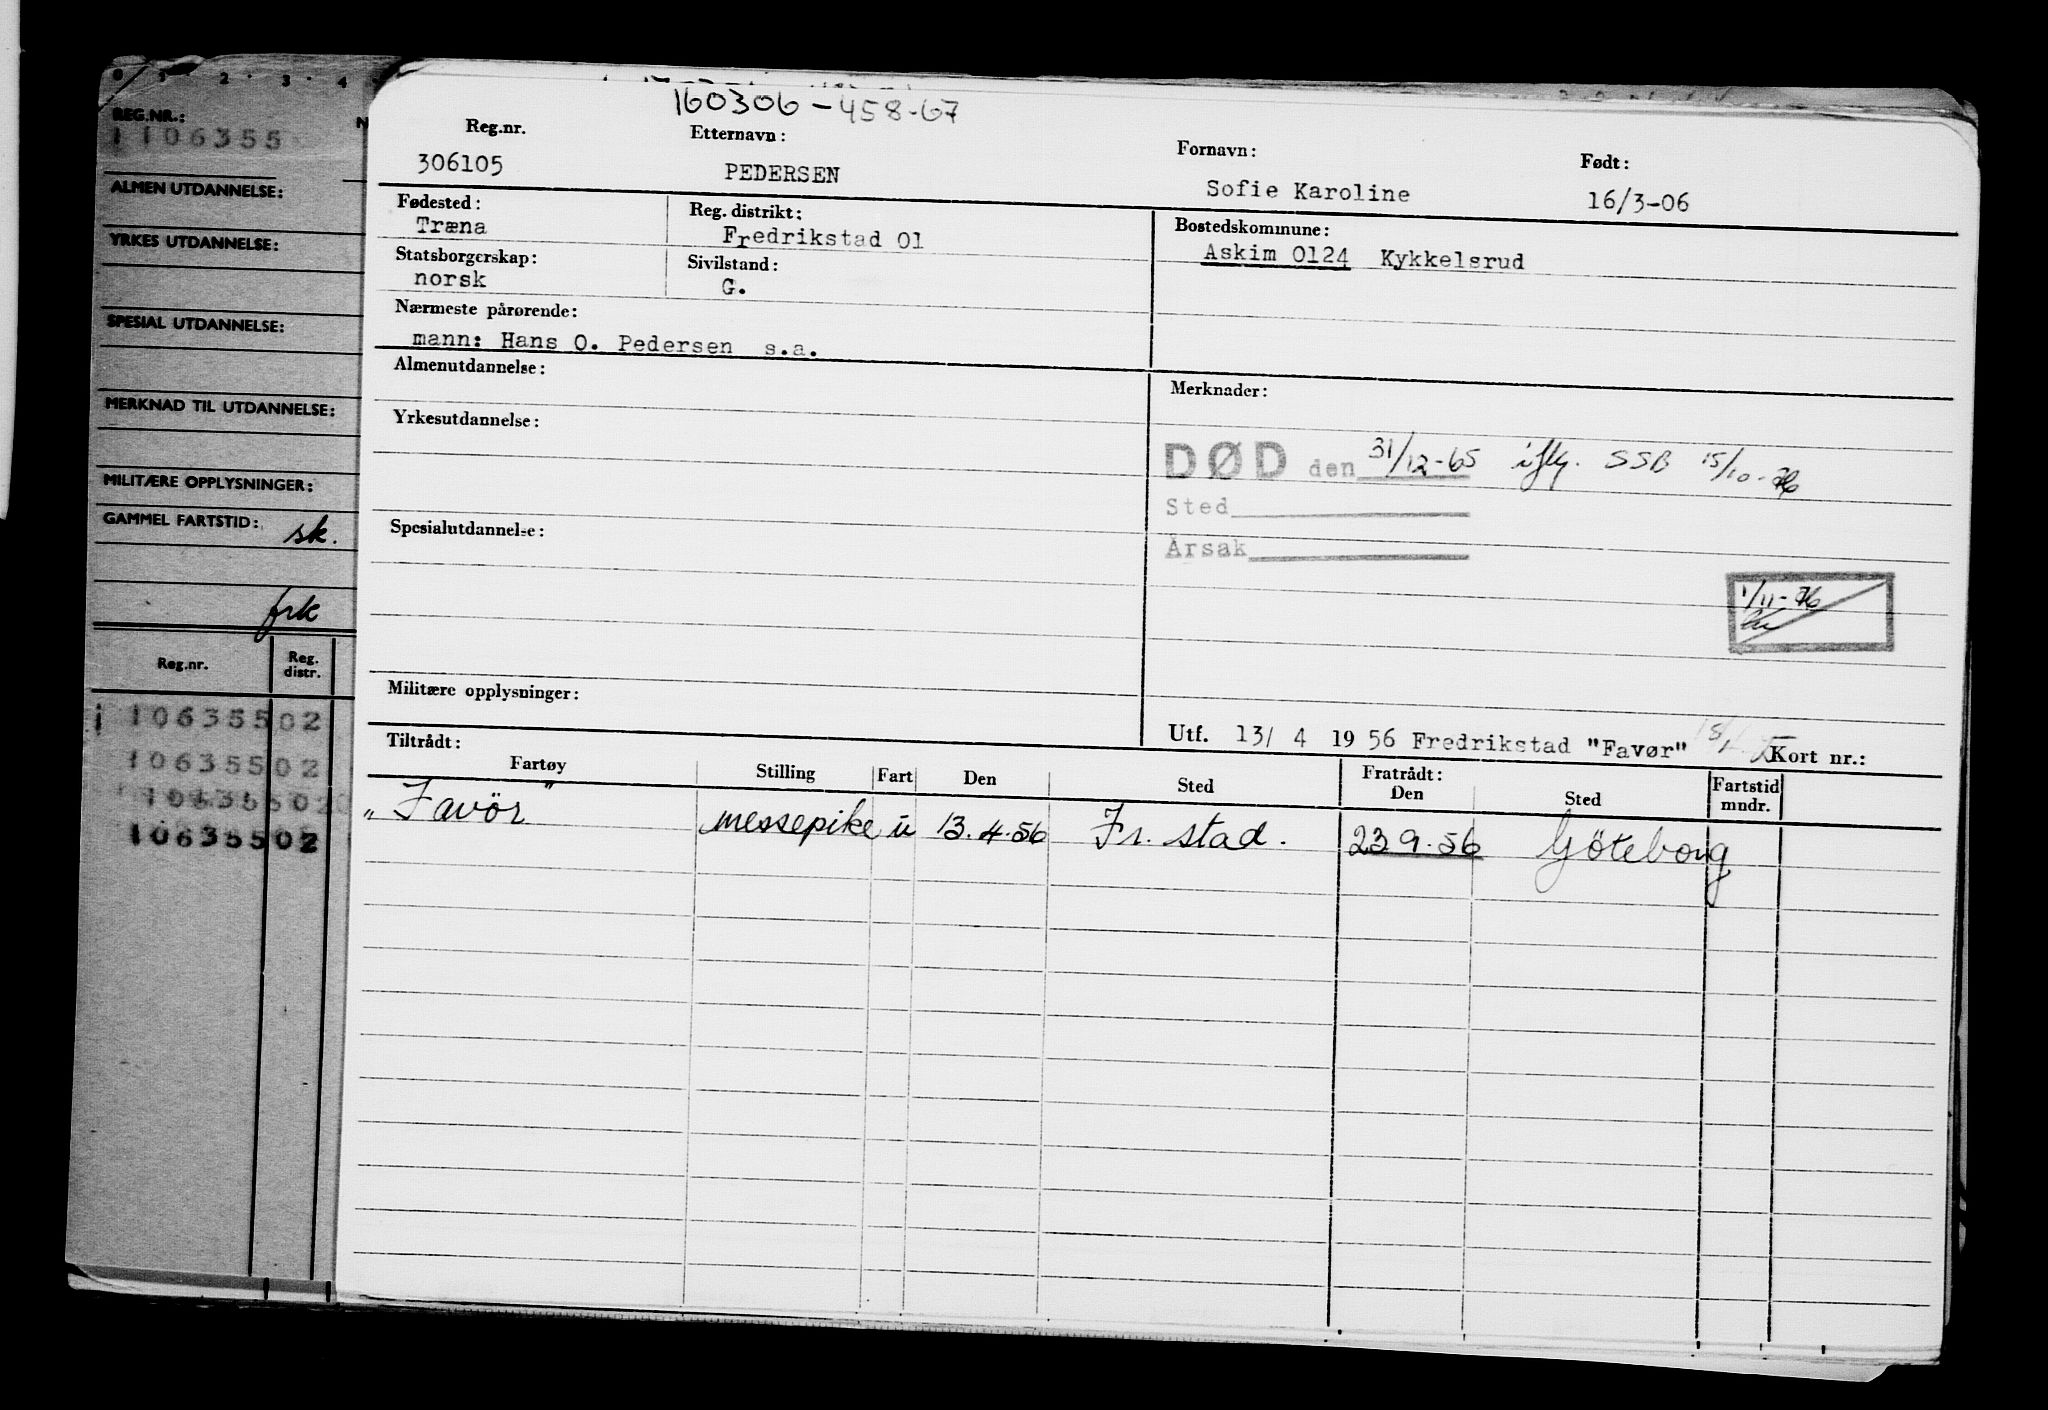 0 1 2 3 4
REG.NR.:
106355
ALMEN UTDANNELSE:
YRKES UTDANNELSE:
SPESIAL UTDANNELSE:
MERKNAD TIL UTDANNELSE:
MILITÆRE OPPLYSNINGER:
GAMMEL FARTSTID: sk.
frk
Reg.nr. Reg. distr.
106355 02
106355 02
106355 02
106355 02
160306-458-67
Reg.nr. Etternavn: Fornavn: Født:
306105 PEDERSEN Sofie Karoline 16/3-06
Fødested: Reg. distrikt: Bostedskommune:
Træna Fredrikstad 01 Askim 0124 Kykkelsrud
Statsborgerskap: Sivilstand:
norsk G.
Nærmeste pårørende:
mann: Hans O. Pedersen s.a.
Almenutdannelse: Merknader:
Yrkesutdannelse:
DØD den 31/12-65 iflg. SSB 15/10-76
Sted
Årsak
Spesialutdannelse:
1/11-76
Militære opplysninger:
Utf. 13/ 4 1956 Fredrikstad "Favør" Kort nr.:
Tiltrådt: Fratrådt:
Fartøy Stilling Fart Den Sted Den Sted Fartstid mndr.
"Favör" messepike u 13.4.56 Fr.stad. 23.9.56 Göteborg